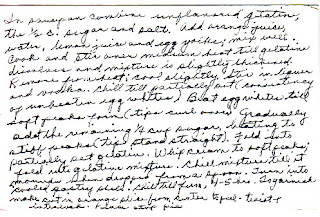 In saucepan combine unflavored gelatin,
the ½ c. sugar and salt. Add orange juice,
water, lemon juice and egg yolks; mix well.
Cook and stir over medium heat till gelatin
dissolves and mixture is slightly thickened.
Remove from heat; cool slightly. Stir in liqueur
and vodka. Chill till partially set (consistency
of unbeaten egg whites) Beat egg whites till
soft peaks form (tips curl over) Gradually
add the remaining ¼ cup sugar, beating to
stiff peaks (tips stand straight). Fold into
partially set gelatin. Whip cream to soft peaks;
fold into gelatin mixture. Chill mixture till it
mounds when dropped from a spoon. Turn into
cooled pastry shell. Chill till firm, 4-5 hrs. To garnish
make cut in orange slice from center to peel. twist &